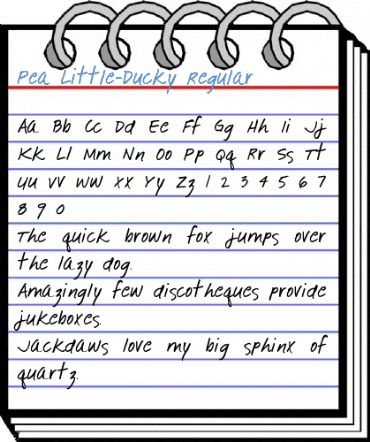 Pea Little-Ducky Regular
Aa Bb Cc Dd Ee Ff Gg Hh Ii Jj
Kk Ll Mm Nn Oo Pp Qq Rr Ss Tt
Uu Vv Ww Xx Yy Zz 1 2 3 4 5 6 7
8 9 0
The quick brown fox jumps over
the lazy dog.
Amazingly few discotheques provide
jukeboxes.
Jackdaws love my big sphinx of
quartz.